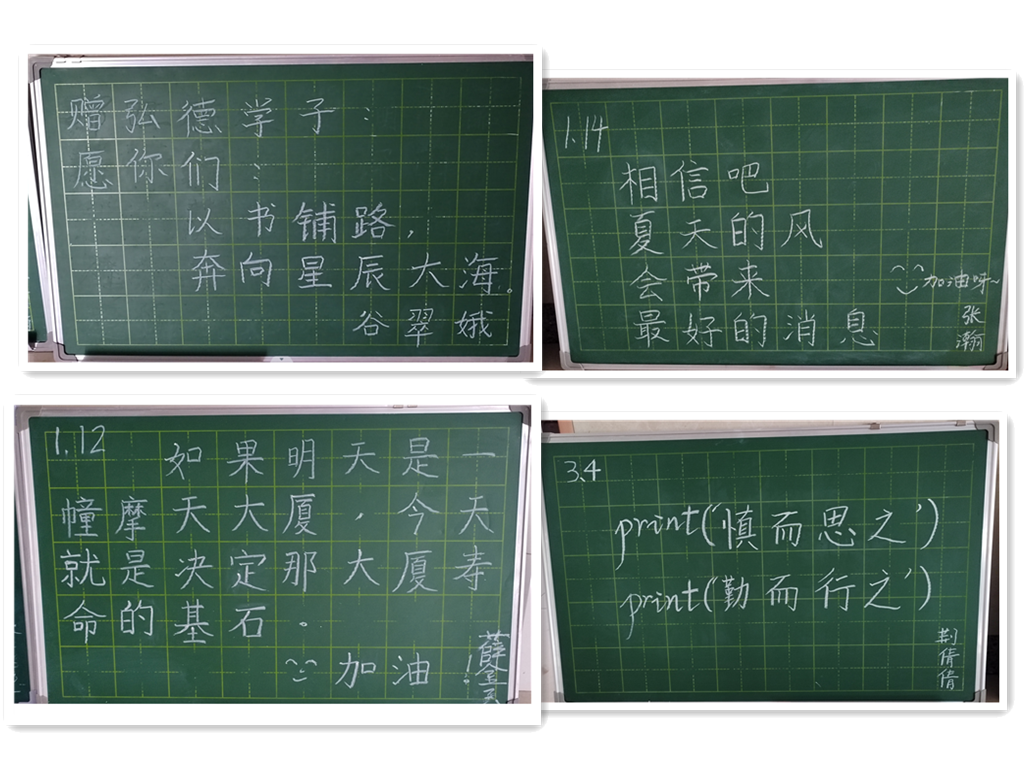 赠弘德学子：
愿你们：
以书铺路，
奔向星辰大海。
谷翠娥
1.14
相信吧
夏天的风
会带来
最好的消息
加油呀~
张瀚
1.12
如果明天是一
幢摩天大厦，今天
就是决定那大厦寿
命的基石。
加油！
薛金灵
3.4
print('慎而思之')
print('勤而行之')
荆倩倩